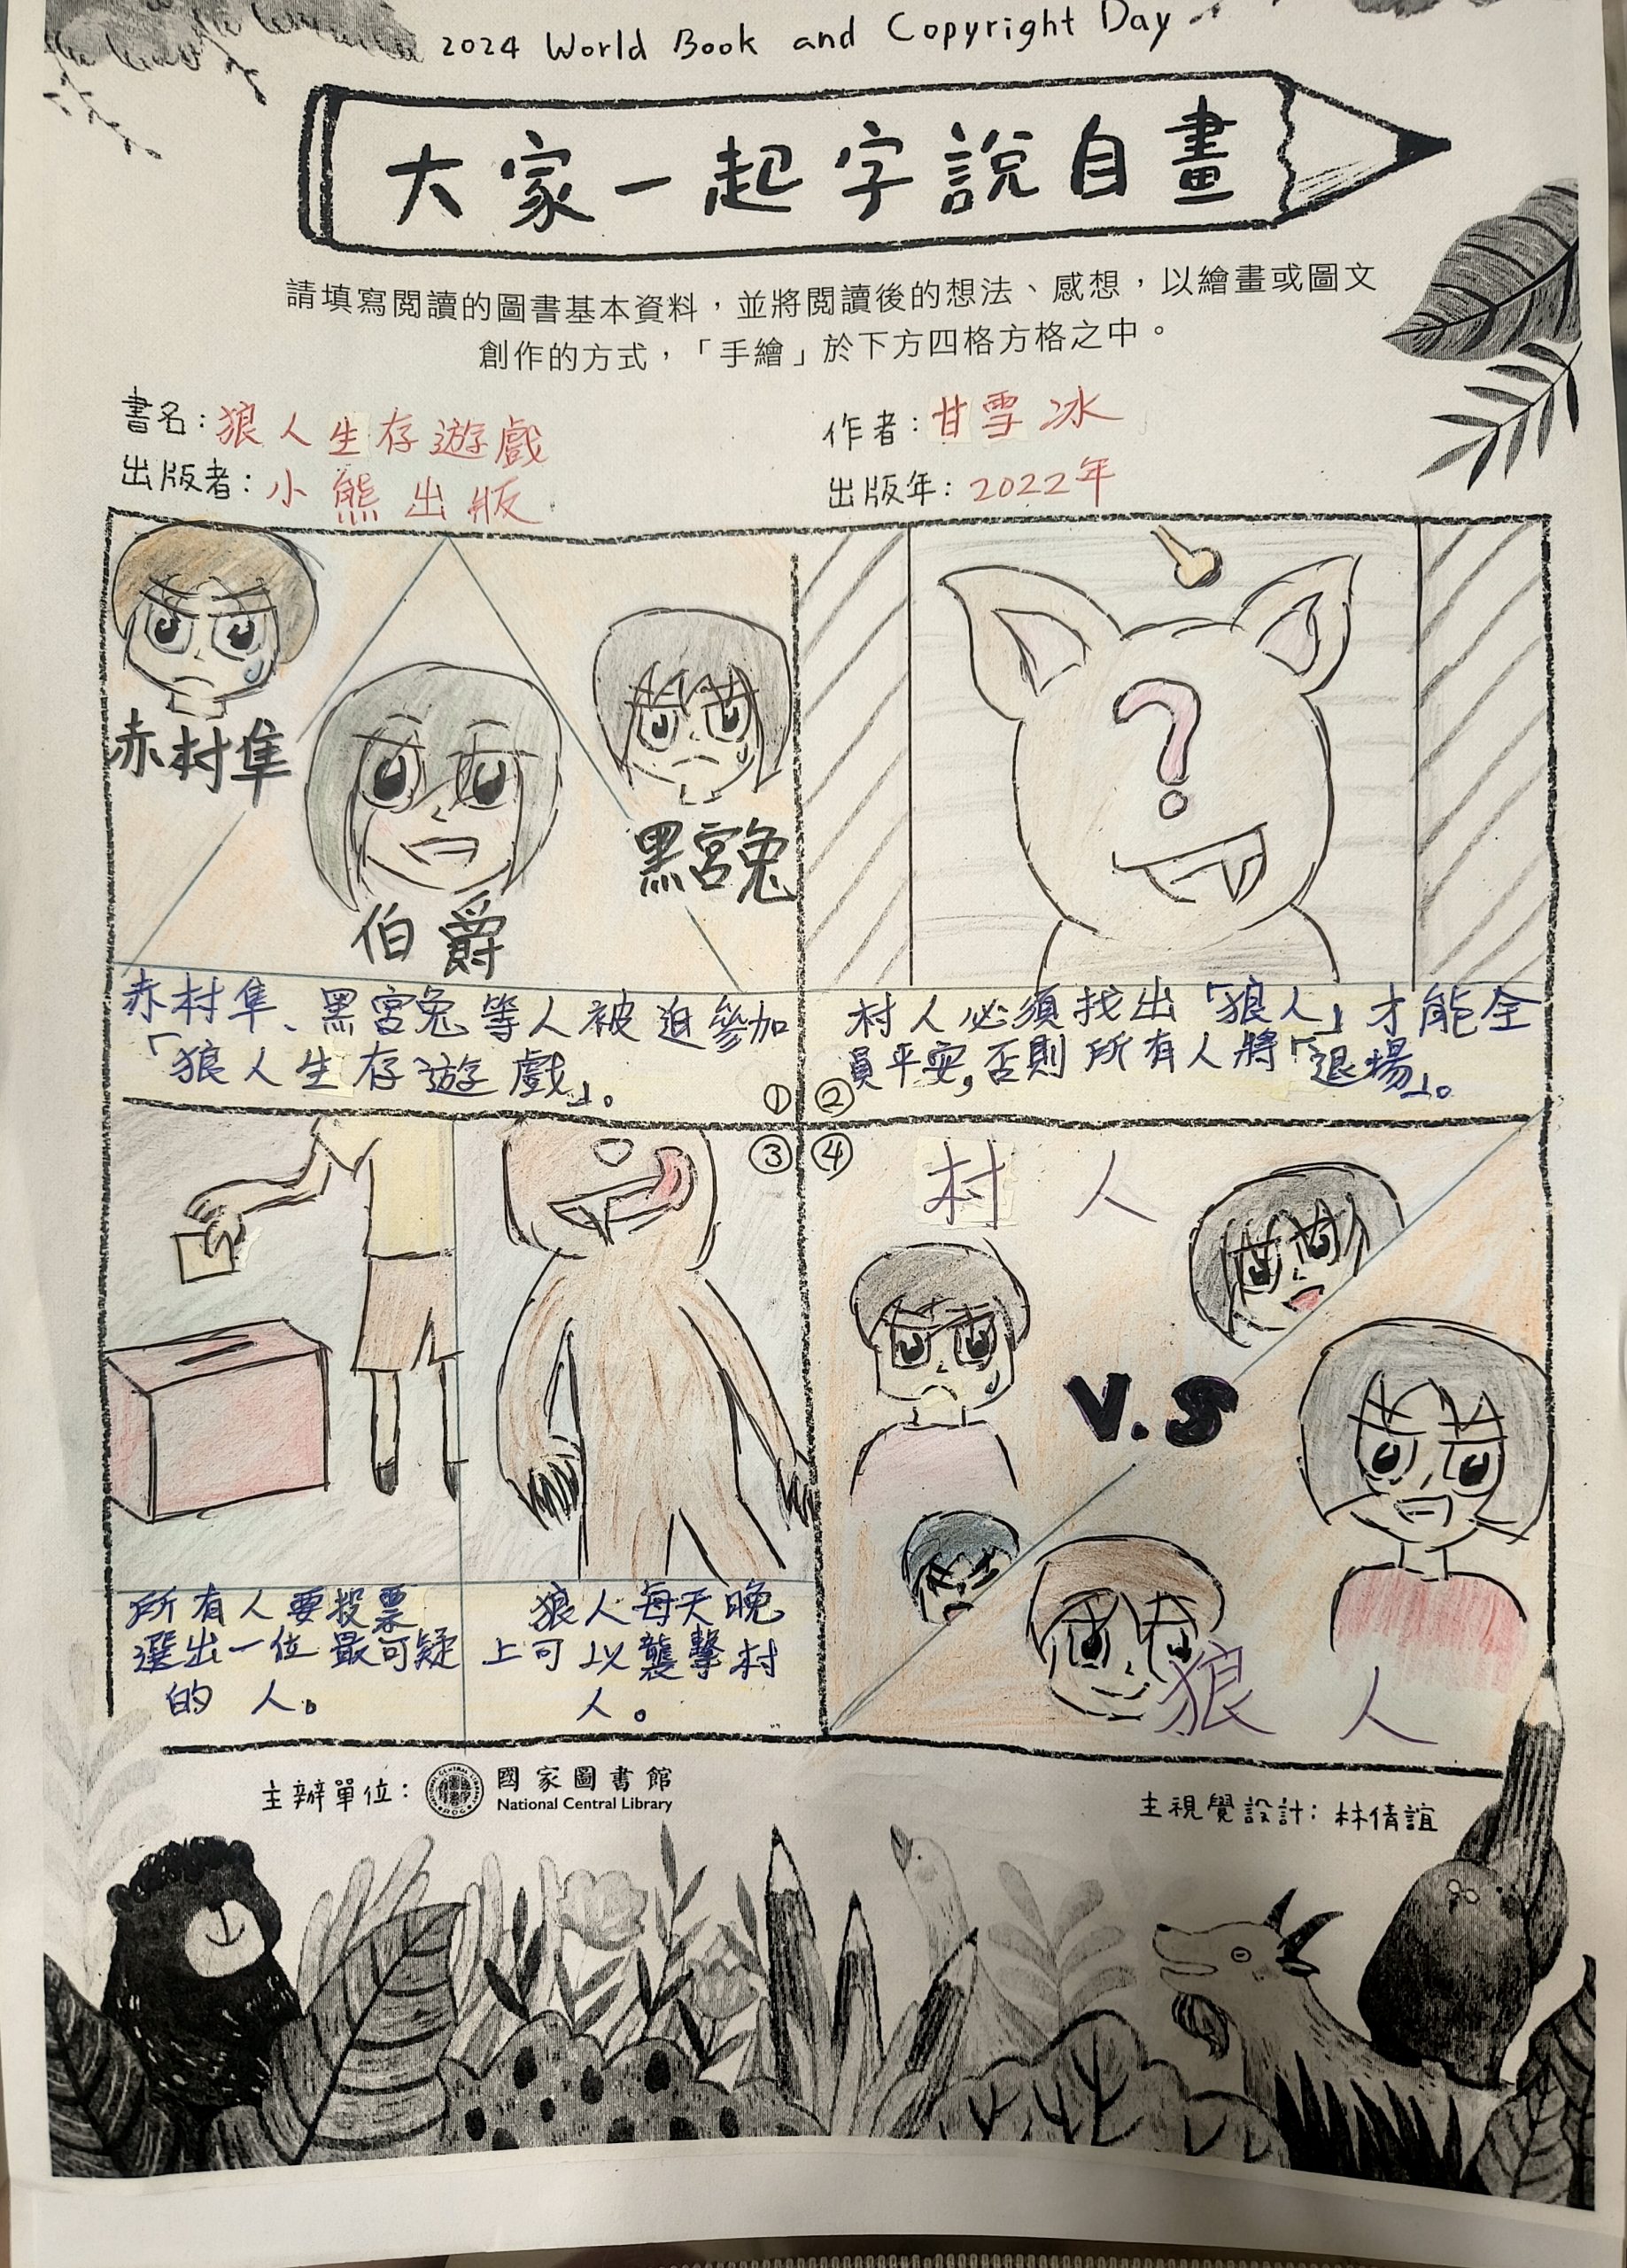 2024 World Book and Copyright Day
大家一起字說自畫
請填寫閱讀的圖書基本資料，並將閱讀後的想法、感想，以繪畫或圖文
創作的方式，「手繪」於下方四格方格之中。
書名：狼人生存遊戲
作者：甘雪冰
出版者：小熊出版
出版年：2022年
赤村隼
黑宮兔
伯爵
赤村隼、黑宮兔等人被迫參加
「狼人生存遊戲」。
①
?
村人必須找出「狼人」才能全
員平安，否則所有人將「退場」。
②
③
所有人要投票
選出一位最可疑
的人。
狼人每天晚
上可以襲擊村
人。
④
村人
V.S
狼人
主辦單位：
國家圖書館
National Central Library
主視覺設計：林倩誼